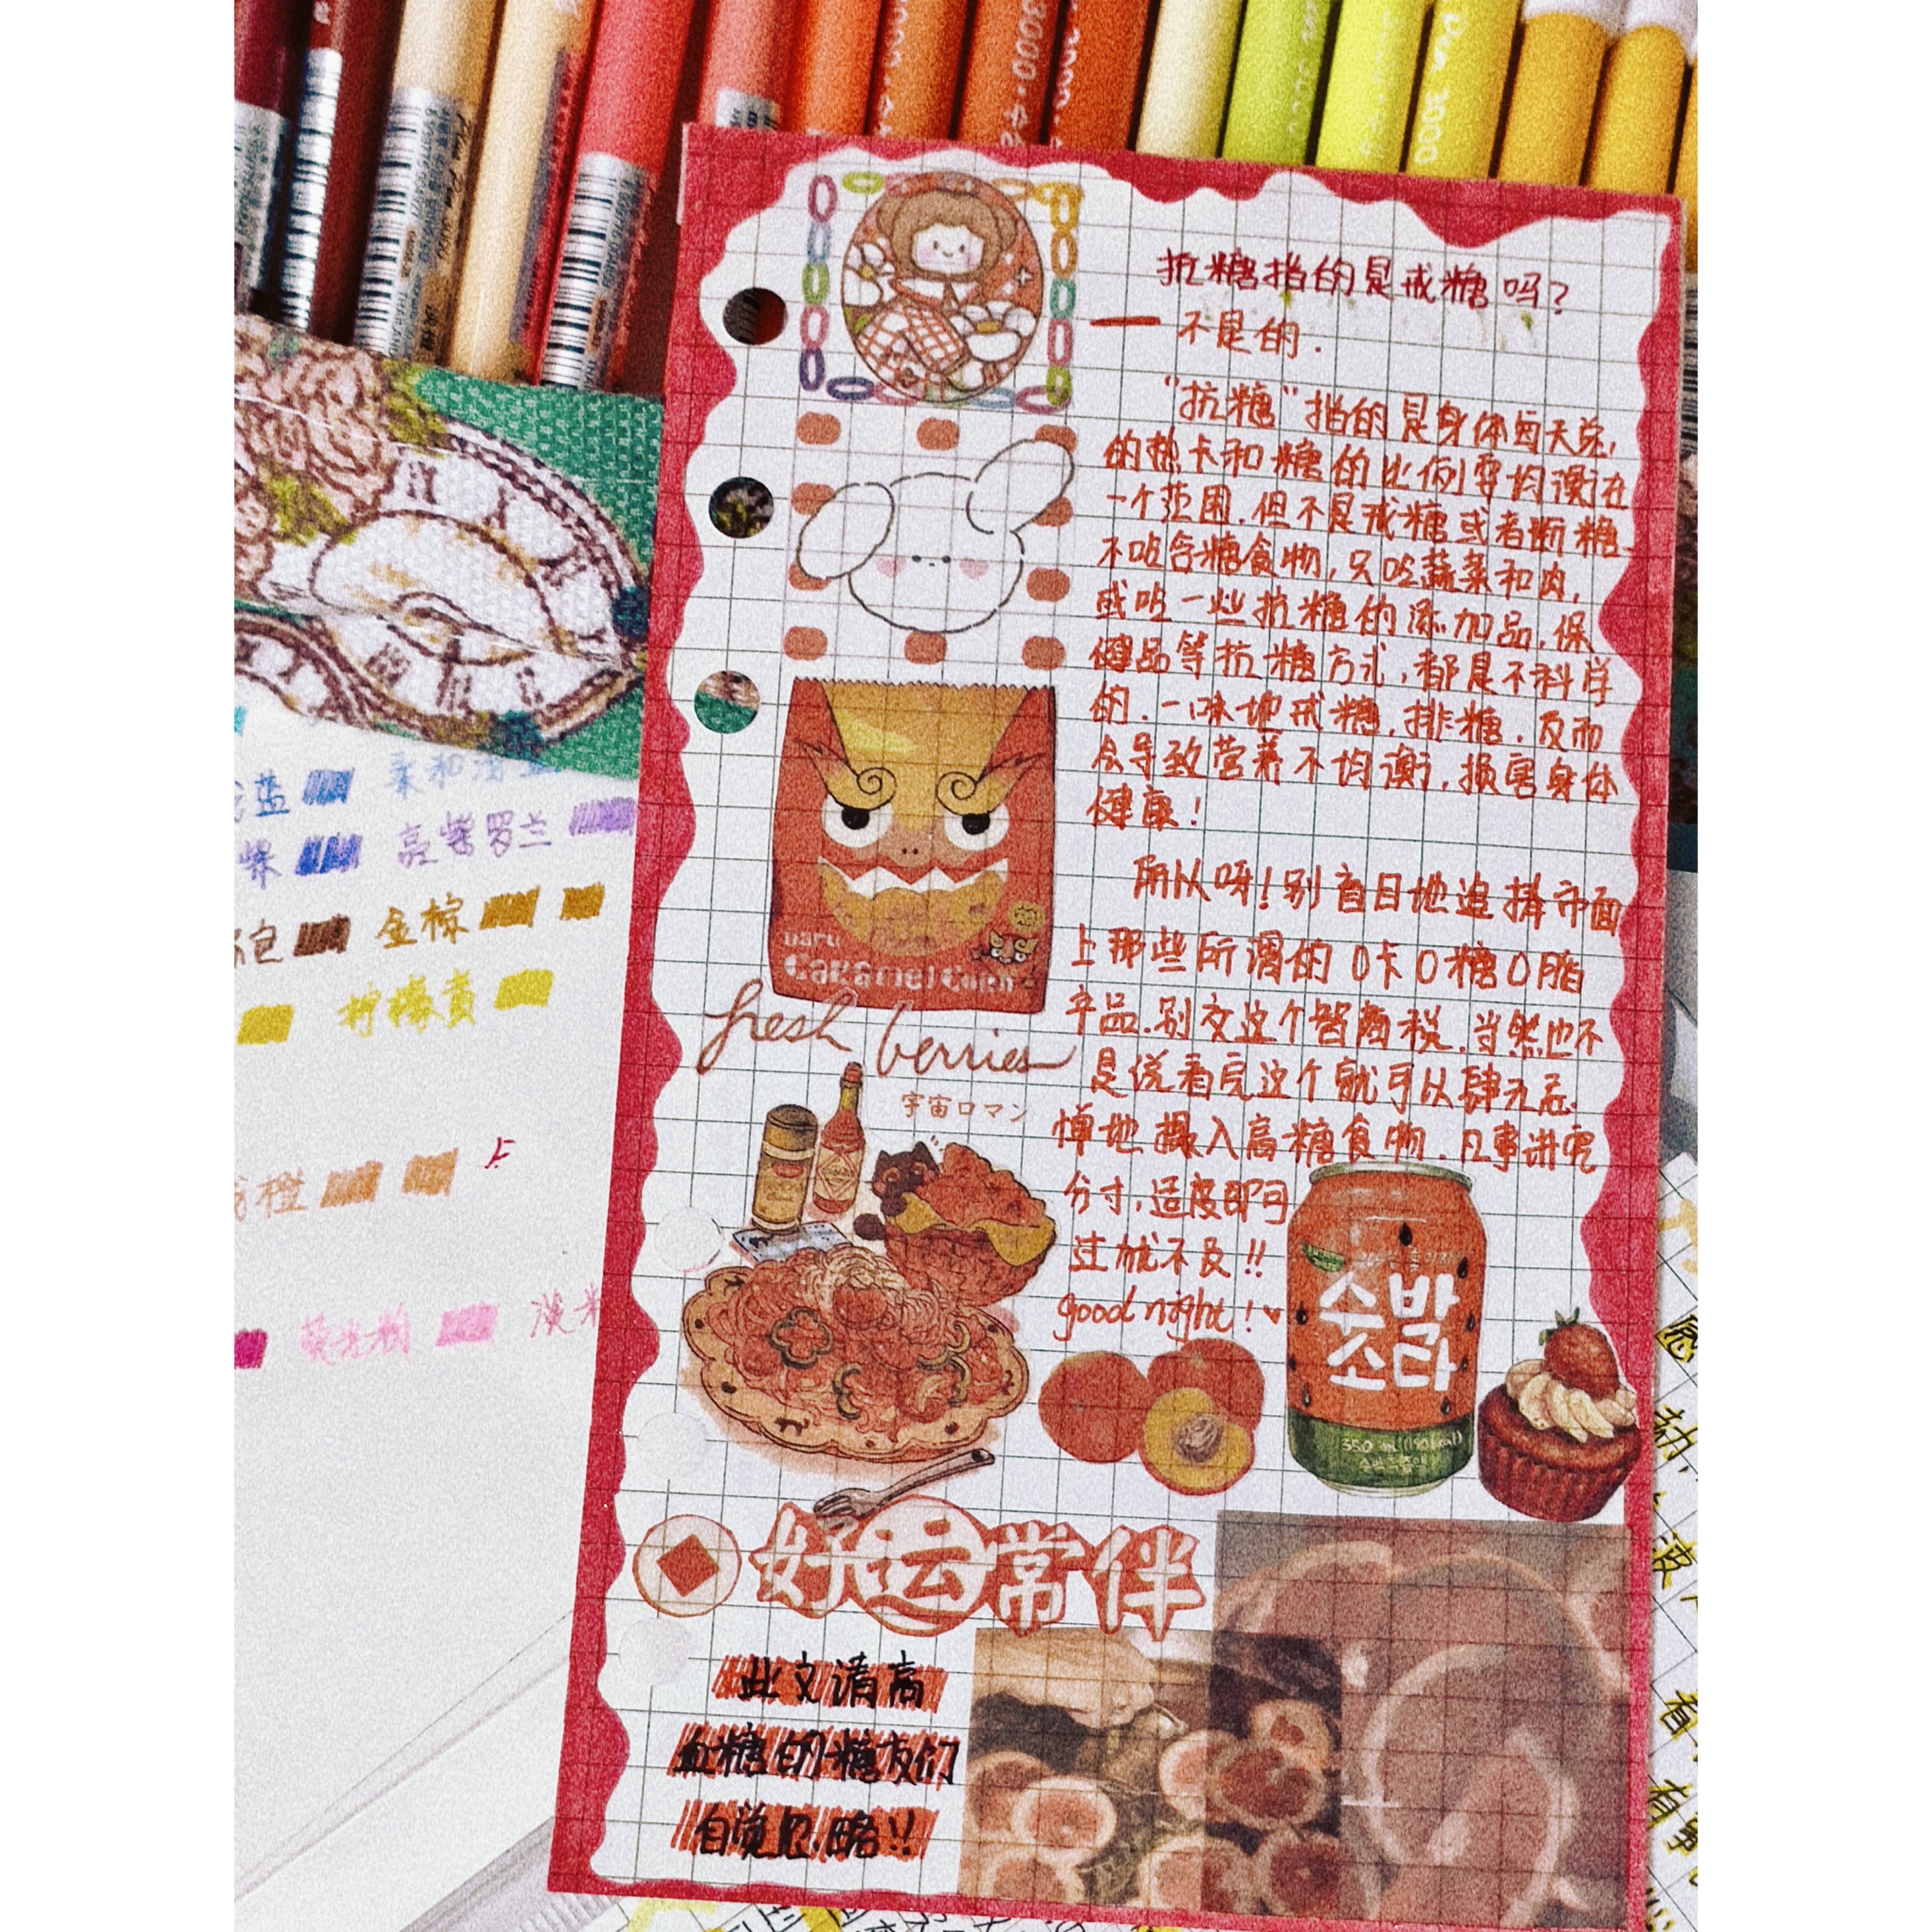 3000
3000
抗糖指的是戒糖吗?
— 不是的.
"抗糖"指的是身体每天总
的热卡和糖的比例要均衡在
一个范围.但不是戒糖或者断糖
不吃含糖食物,只吃蔬菜和肉,
或吃一些抗糖的添加品.保
健品等抗糖方式,都是不科学
的.一味地戒糖.排糖.反而
会导致营养不均衡.损害身体
健康!
所以呀!别盲目地追捧市面
上那些所谓的0卡0糖0脂
产品.别交这个智商税.当然也不
是说看完这个就可以肆无忌
惮地摄入高糖食物.凡事讲究
分寸,适度即可
过犹不及!!
good night!
Caramel Corn
fresh berries
宇宙ロマン
수박
소다
350 mL (190kcal)
好运常伴
此文请高
血糖的糖友们
自觉忽略!!
亮紫罗兰
金棕
柠檬黄
橙
荧光粉